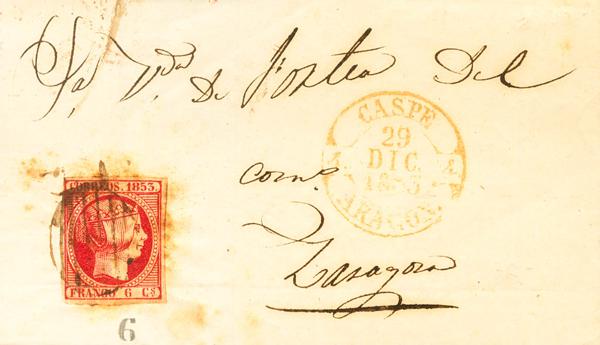 Sra. Vda. De Fortea Del
CASPE
29
DIC.
1853
ARAGON.
com.o
CORREOS. 1853.
FRANCO 6 Cs.
Zaragoza
6